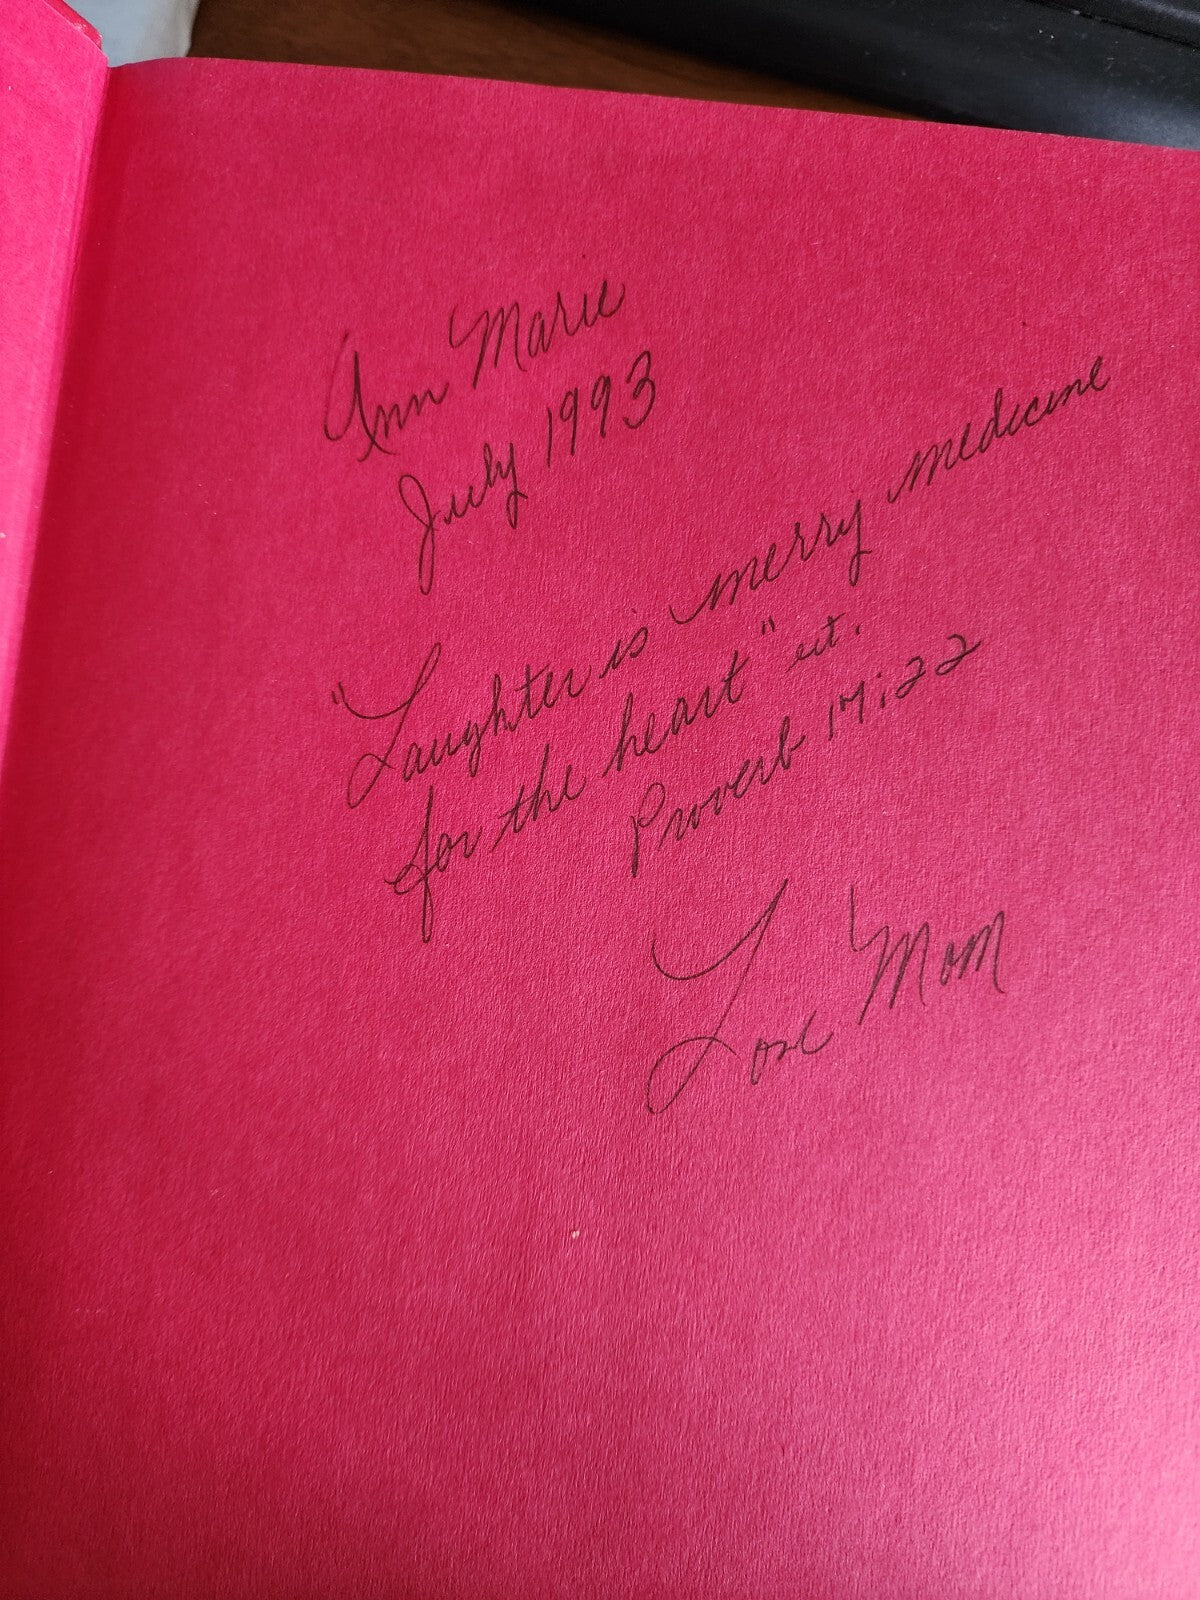 Ann Marie
July 1993
"Laughter is merry medicine
for the heart" ect.
Proverb 17:22
Love Mom